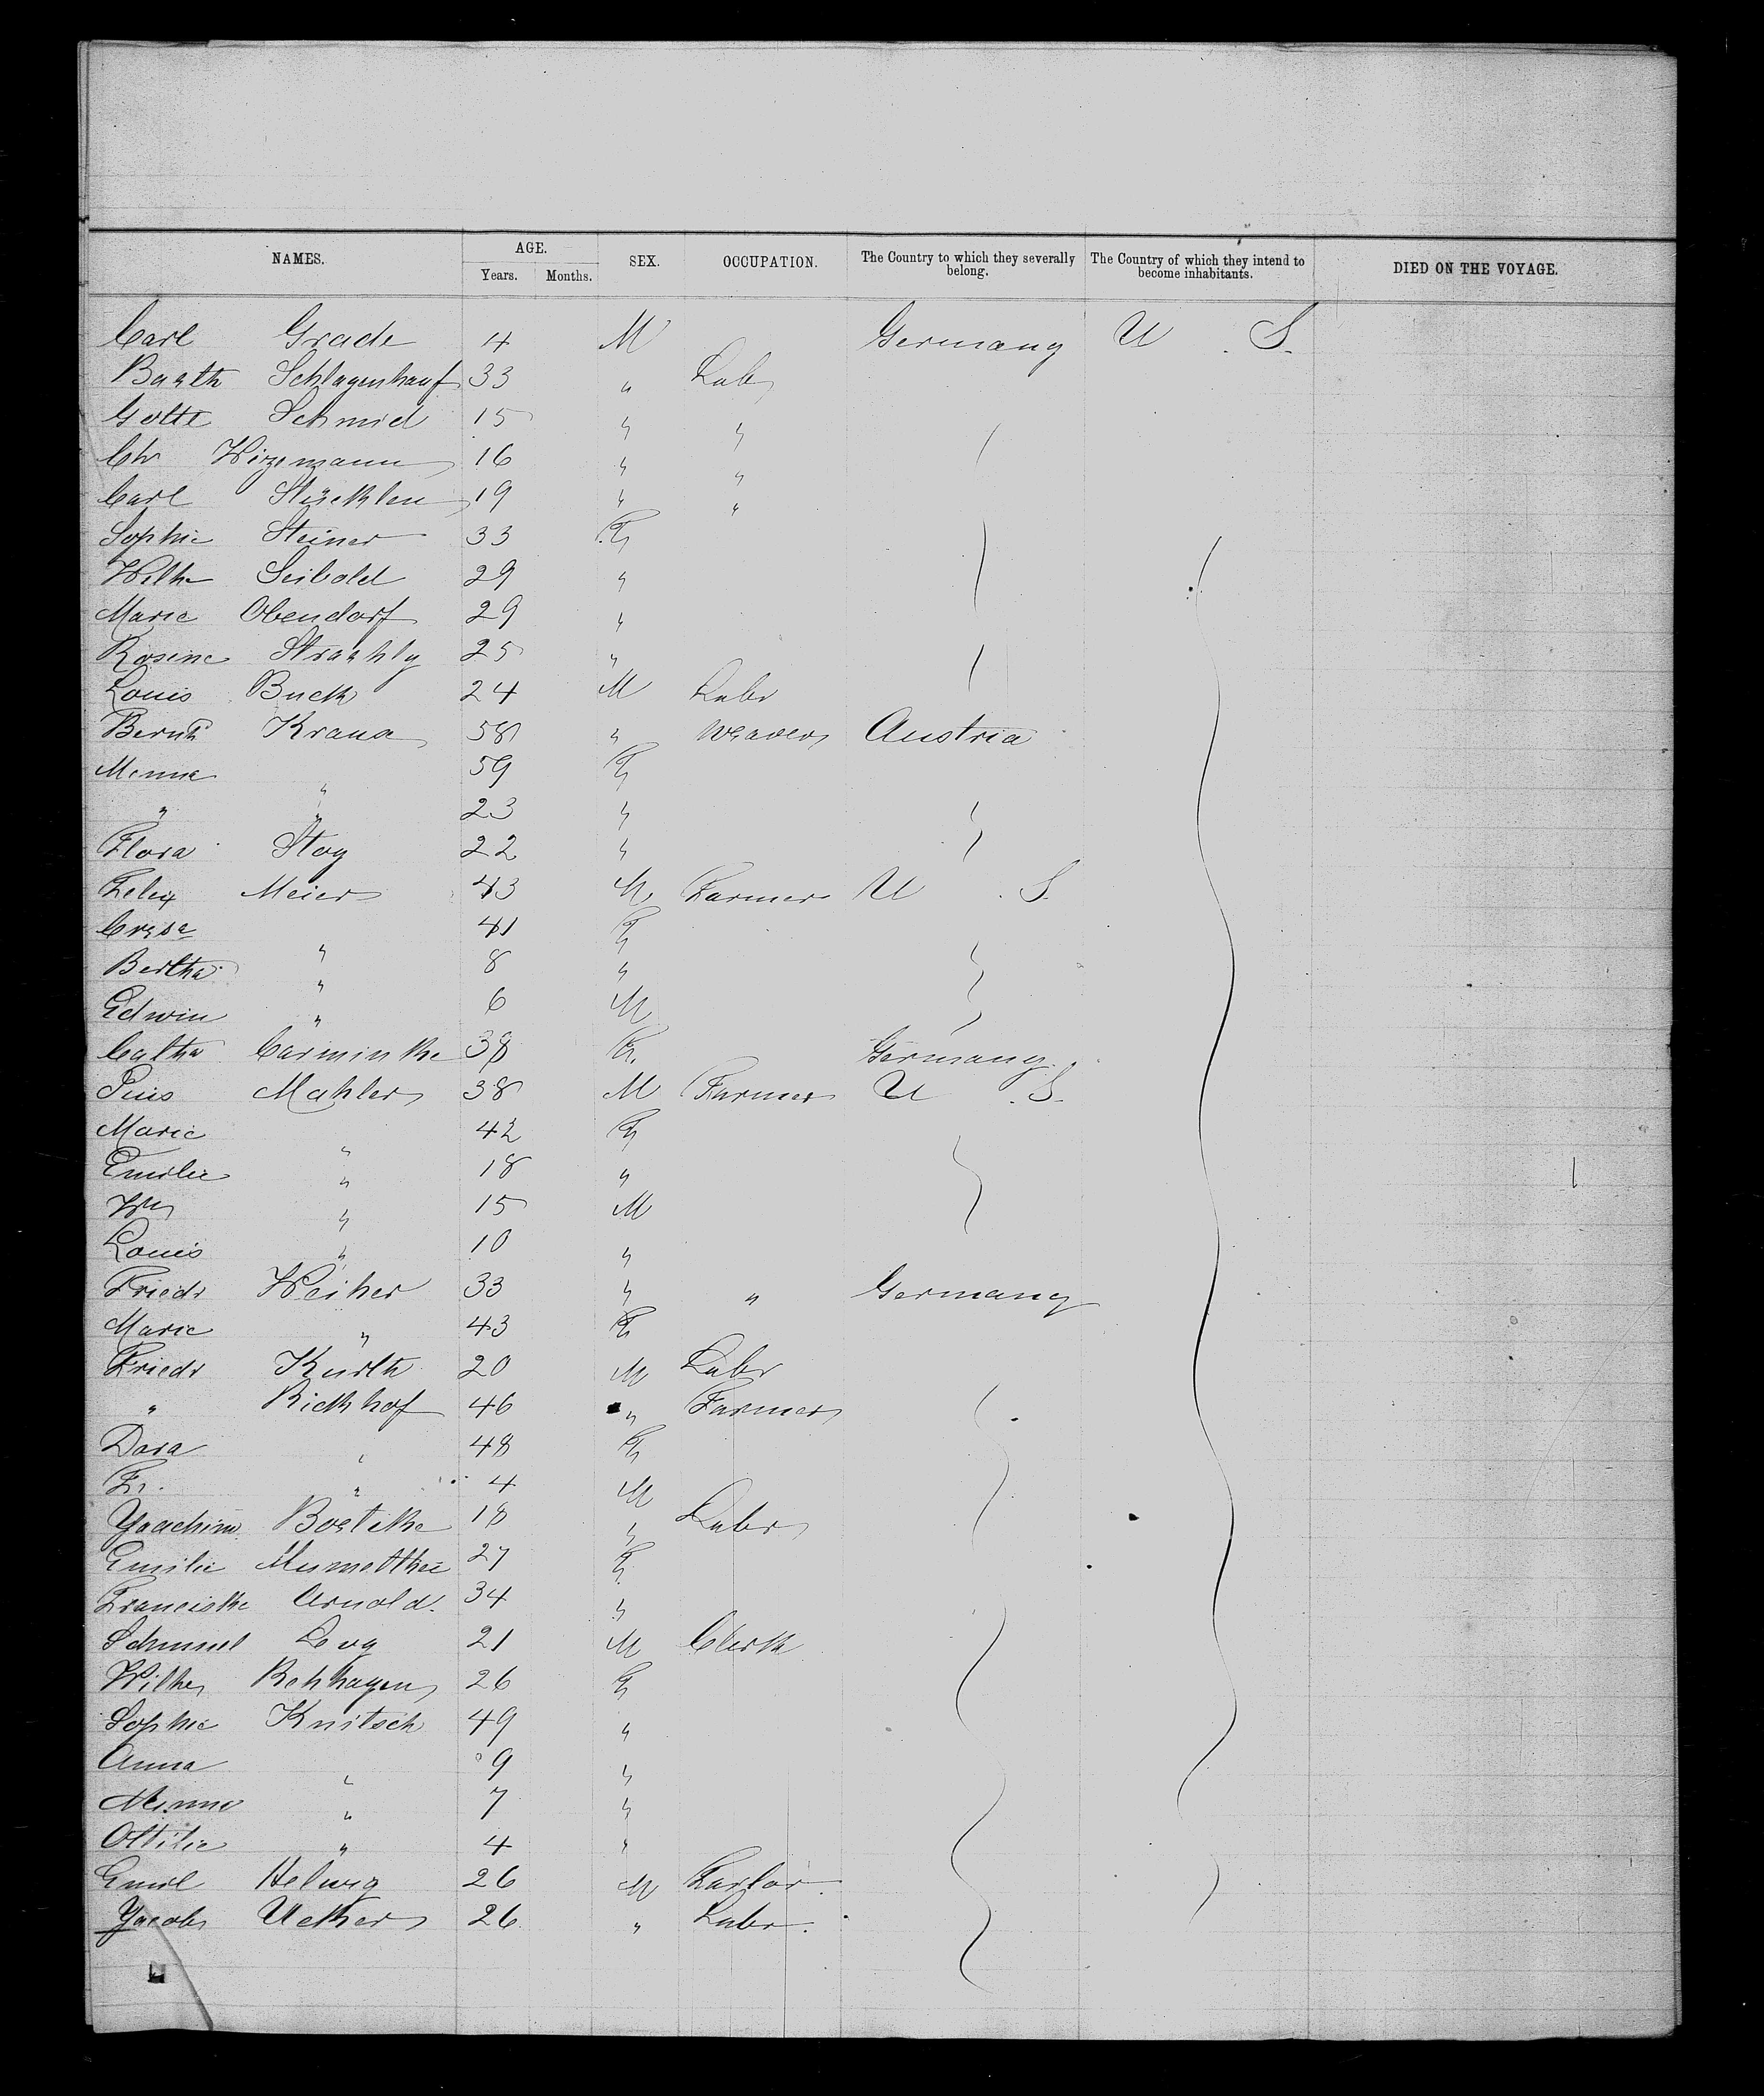 NAMES. AGE. SEX. OCCUPATION. The Country to which they severally belong. The Country of which they intend to become inhabitants. DIED ON THE VOYAGE.
Years. Months.
Carl Grade 4 M Germany U. S.
Barth Schlagenhauf 33 " Labr
Gottl Schmid 15 " "
Chr 16 " "
Carl 19 " "
Sophie Steiner 33 F
Wilhe Seibold 29 "
Marie Obendorf 29 "
Rosine 25 "
Louis Buck 24 M Labr
Bernh Kraua 58 " Weaver Austria
Menna " 59 F
" " 23 "
Flora Stoy 22 "
Felix Meier 43 M Farmer U. S.
" 41 F
Bertha " 8 "
Edwin " 6 M
38 F. Germany
Pius Mahler 38 M Farmer U. S.
Marie " 42 F
Emilie " 18 "
Wm " 15 M
Louis " 10 "
Friedr Weiher 33 " " Germany
Marie " 43 F
Friedr Kurth 20 M Labr
" Rickhof 46 " Farmer
Dora " 48 F
Fr. " 4 M
Joachim 18 " Labr
Emilie 27 F.
Franciska Arnold. 34 "
Levy 21 M Clerk
Wilhe Rehhagen 26 F
Sophie Knitsch 49 "
Anna " 9 "
Minna " 7 "
Ottilie " 4 "
Emil Helwig 26 M Tailor
Jacob Uecker 26 " Labr.